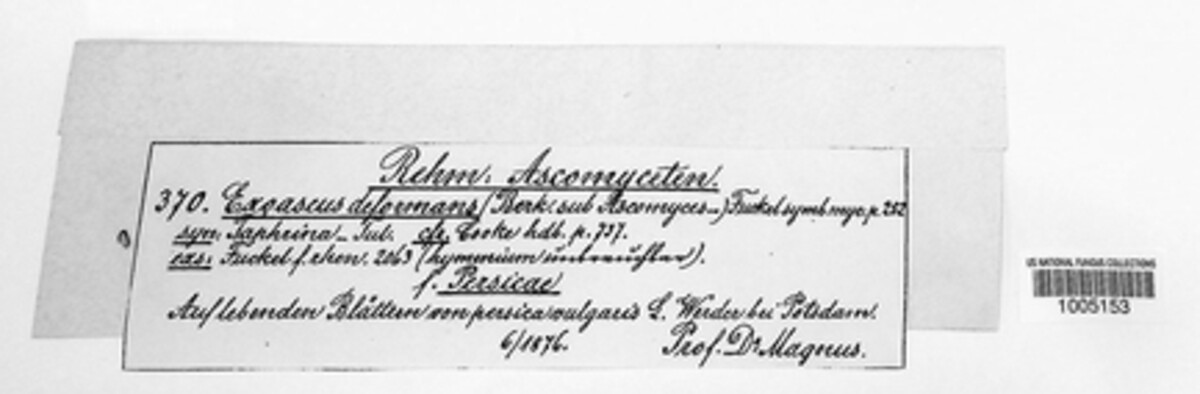 Rehm: Ascomyceten.
370. Exoascus deformans (Berk: sub Ascomyces_) Fuckel symb. myc. p. 252
syn: Taphrina _ Tul. cfr. Cooke hdb. p. 737.
exs: Fuckel f. rhen. 2063 (hymenium unbrauchbar).
f. Persicae
Auf lebenden Blättern von persica vulgaris L. Werder bei Potsdam.
6/1876. Prof. Dr Magnus.
US NATIONAL FUNGUS COLLECTIONS
1005153